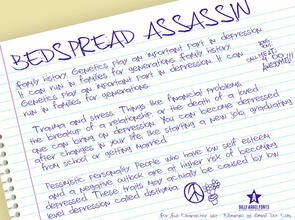 BEDSPREAD ASSASSIN
Family history. Genetics play an important part in depression.
It can run in families for generations. family history.
Genetics play an important part in depression. It can
run in families for generations.
Trauma and stress. Things like financial problems,
the breakup of a relationship, or the death of a loved
one can bring on depression. You can become depressed
after changes in your life, like starting a new job, graduating
from school, or getting married.
Pessimistic personality. People who have low self esteem
and a negative outlook are at higher risk of becoming
depressed. These traits may actually be caused by low
level depression called dysthymia.
BILLY ARGEL FONTS